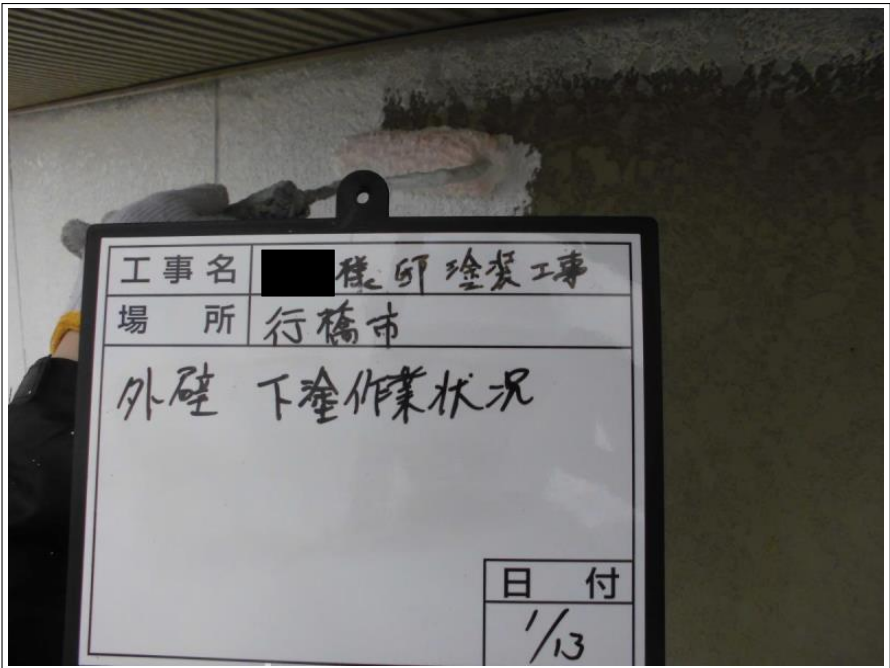 工事名 様邸塗装工事
場所 行橋市
外壁 下塗作業状況
日付
1/13